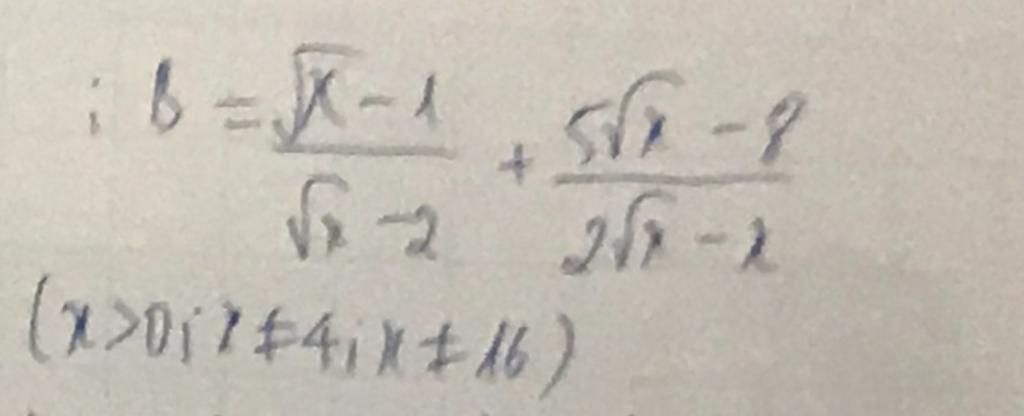 ; B = \frac{\sqrt{x} - 1}{\sqrt{x} - 2} + \frac{5\sqrt{x} - 8}{2\sqrt{x} - x}
(x > 0; x ≠ 4; x ≠ 16)